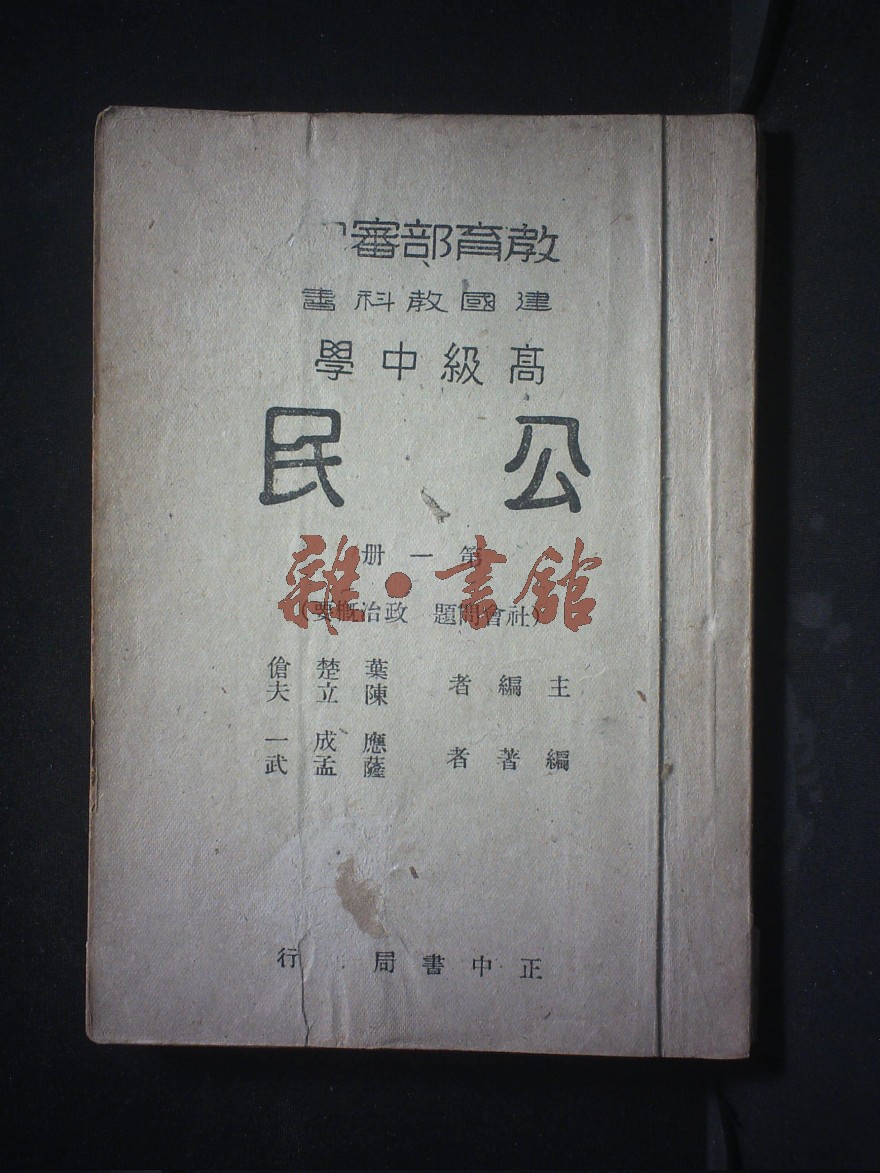 教育部審
建國教科書
高級中學
公民
第一册
(社會問題 政治概要)
主編者 葉楚傖 陳立夫
編著者 應成一 薩孟武
正中書局 行
雜·書館